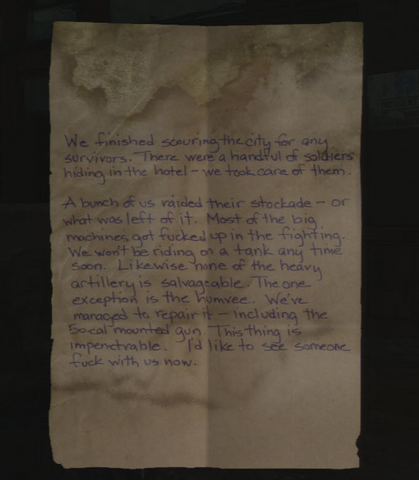 We finished scouring the city for any
survivors. There were a handful of soldiers
hiding in the hotel - we took care of them.
A bunch of us raided their stockade - or
what was left of it. Most of the big
machines got fucked up in the fighting.
We won't be riding on a tank any time
soon. Likewise none of the heavy
artillery is salvageable. The one
exception is the humvee. We've
managed to repair it - including the
50cal mounted gun. This thing is
impenetrable. I'd like to see someone
fuck with us now.